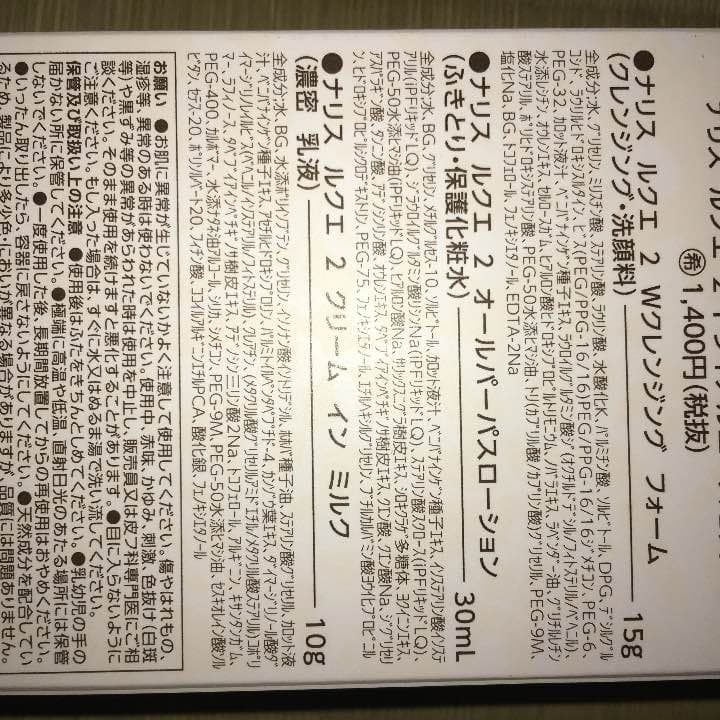 ㊗1,400円(税抜)
●ナリス ルクエ 2 Wクレンジング フォーム
(クレンジング・洗顔料) 15g
全成分:水、グリセリン、ミリスチン酸、ステアリン酸、ラウリン酸、水酸化K、パルミチン酸、ソルビトール、DPG、デシルグル
コシド、ラウリルヒドロキシスルタイン、ビス(PEG/PPG-16/16)PEG/PPG-16/16ジメチコン、PEG-6、
PEG-32、カロット液汁、ベニバナインゲン種子エキス、ラウロイルグルタミン酸ジ(オクチルドデシル/フィトステリル/ベヘニル)、
水添レシチン、オウレンエキス、セルロースガム、ヒアルロン酸ヒドロキシプロピルトリモニウム、ハバエキス、ラベンダー油、グリチルレチン
酸ステアリル、ポリヒドロキシステアリン酸、PEG-50水添ヒマシ油、トリ(カプリル酸/カプリン酸)グリセリル、PEG-9M、
塩化Na、BG、トコフェロール、フェノキシエタノール、EDTA-2Na
●ナリス ルクエ 2 オールパーパスローション
(ふきとり・保護化粧水) 30mL
全成分:水、BG、グリセリン、メチルグルセス-10、ソルビトール、カロット液汁、ベニバナインゲン種子エキス、イソステアリン酸イソステ
アリル(iPFリキッドLQ)、ジラウロイルグルタミン酸リシンNa(iPFリキッドLQ)、ステアリン酸スクロース(iPFリキッドLQ)、
PEG-50水添ヒマシ油(iPFリキッドLQ)、ヒアルロン酸Na、サリックスニグラ樹皮エキス、シロキクラゲ多糖体、ヨクイニンエキス、
アスパラギン酸、
クエン酸、クエン酸Na、
PEG-75、フェノキシエタノール、エチルヘキシルグリセリン、ブチルカルバミン酸ヨウ化プロピニル
●ナリス ルクエ 2 クリーム イン ミルク
(濃密 乳液) 10g
全成分:水、BG、水添ポリイソブテン、グリセリン、イソノナン酸イソトリデシル、ホホバ種子油、ステアリン酸グリセリル、カロット液
汁、ベニバナインゲン種子エキス、アセチルヒドロキシプロリン、パルミトイルペンタペプチド-4、カンゾウ葉エキス、ダイマージリノール酸ダ
イマージリノレイルビス(ベヘニル/イソステアリル/フィトステリル)、クレアチン、(メタクリル酸グリセリルアミドエチル/メタクリル酸ステアリル)コポリ
マー、ラフィノース、タベブイアインペチギノサ樹皮エキス、アデノシン三リン酸2Na、トコフェロール、アルギニン、キサンタンガム、
PEG-400、カルボマー、水添ナタネ油アルコール、シリカ、ジメチコン、PEG-9M、PEG-50水添ヒマシ油、セスキオレイン酸ソル
ビタン、セテス-20、ポリソルベート20、フィチン酸、ココイルアルギニンエチルPCA、酸化銀、フェノキシエタノール
お願い ●お肌に異常が生じていないかよく注意して使用してください。傷やはれもの、
湿疹等、異常のある時は使わないでください。使用中、赤味、かゆみ、刺激、色抜け(白斑
等)や黒ずみ等の異常があらわれた時は使用を中止し、販売員又は皮フ科専門医にご相
談ください。そのまま使用を続けますと悪化することがあります。●目に入らないように
ご注意ください。もし入った場合は、すぐに水又はぬるま湯で洗い流してください。
保管及び取扱い上の注意 ●使用後はふたをきちんとしめてください。●乳幼児の手の
届かない所に保管してください。●極端に高温や低温、直射日光のあたる場所には保管
しないでください。●一度使用した後、長期間放置してからの再使用はおやめください。
●いったん取り出したら、容器に戻さないようにしてください。●天然成分を配合してい
るため、製品により多少色・においが異なる場合がありますが、品質には問題ありません。